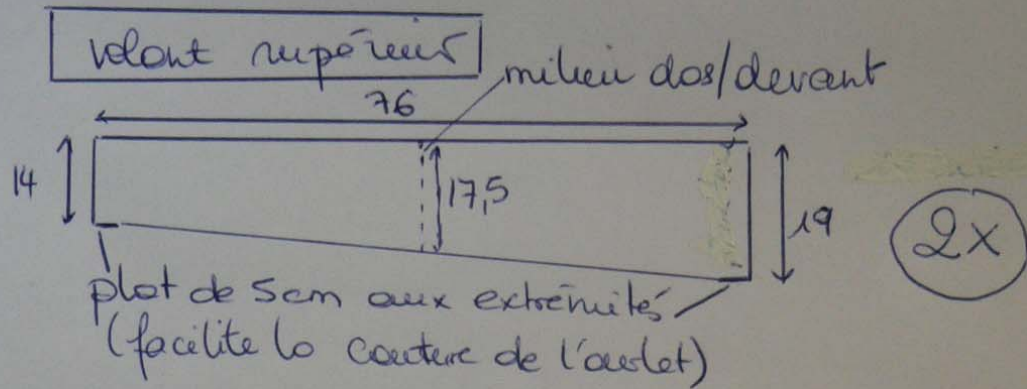 volant supérieur
milieu dos/devant
76
14
17,5
19
2x
plat de 5cm aux extrémités
(facilite la couture de l'ourlet)